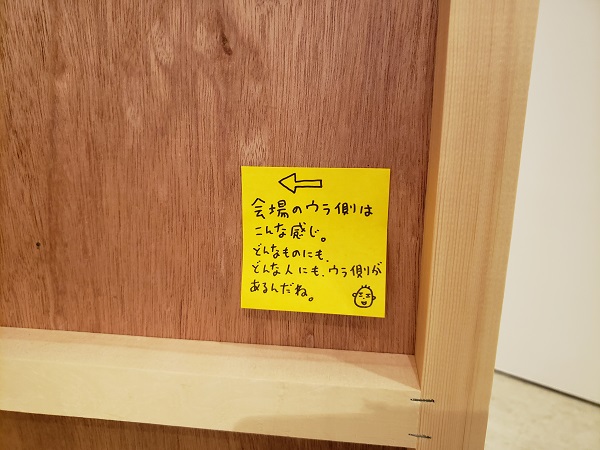 会場のウラ側は
こんな感じ。
どんなものにも、
どんな人にも、ウラ側が
あるんだね。